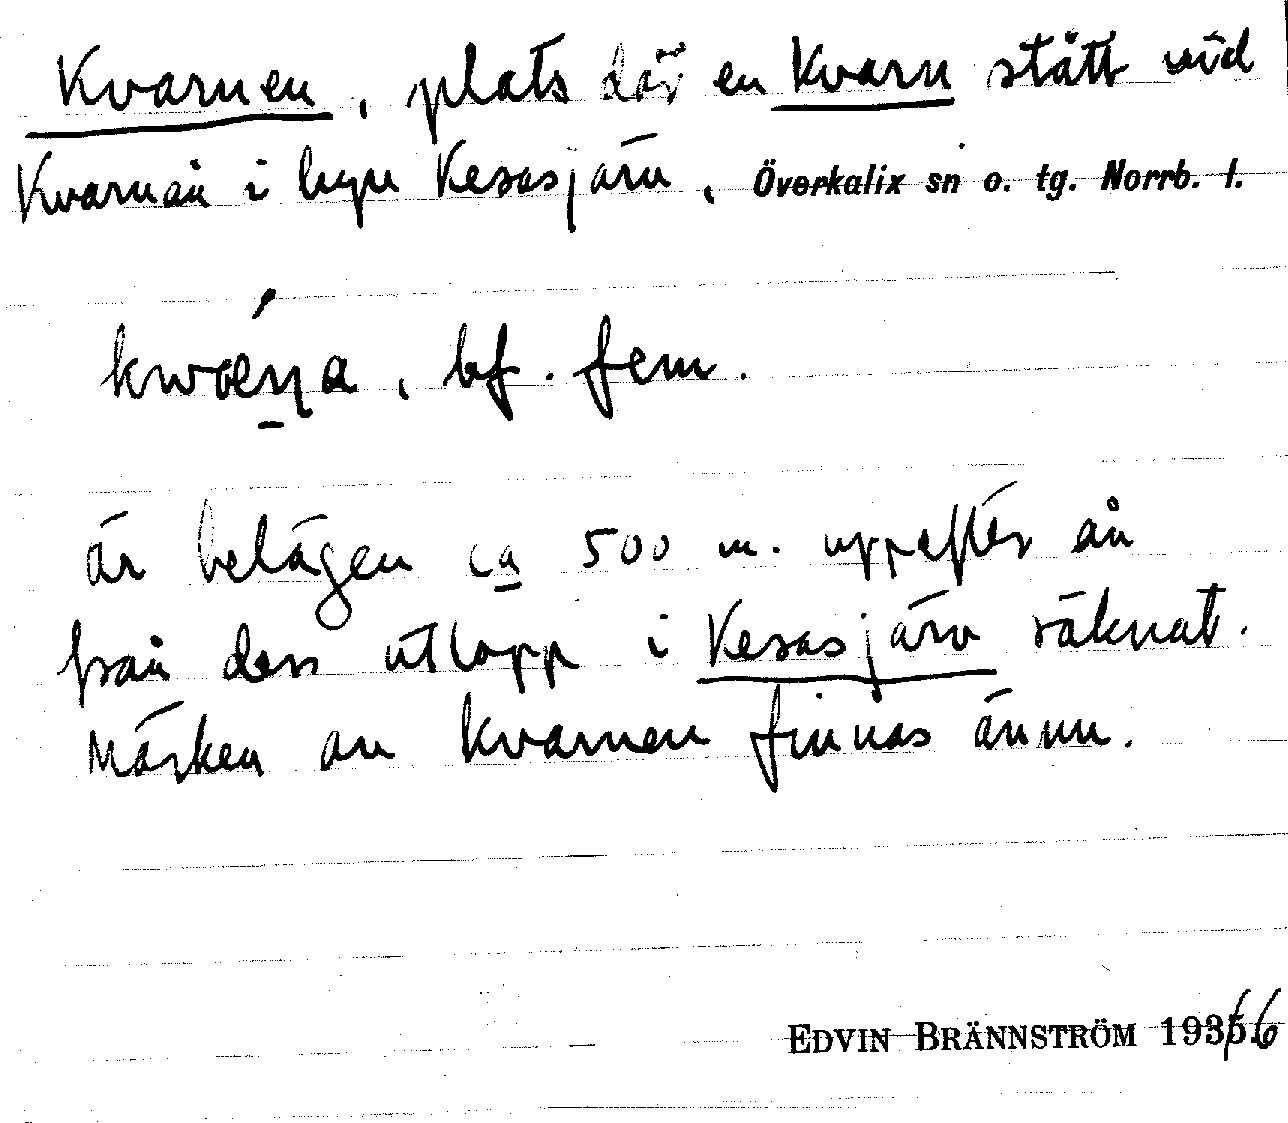 Kvarnen, plats där en Kvarn stått vid
Kvarnån i byn Kesasjärv, Överkalix sn o. tg. Norrb. l.
bf. fem.
är belägen ca 500 m. uppefter ån
från dess utlopp i Kesasjärv räknat.
Märken av kvarnen finnas ännu.
EDVIN BRÄNNSTRÖM 1936